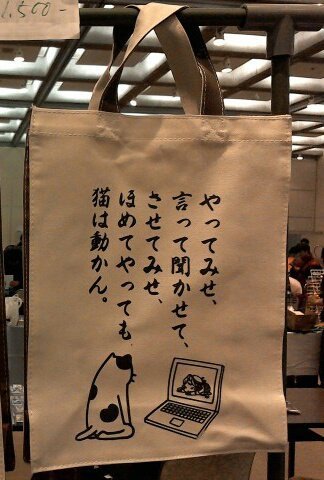 1,500-
やってみせ、
言って聞かせて、
させてみせ、
ほめてやっても、
猫は動かん。